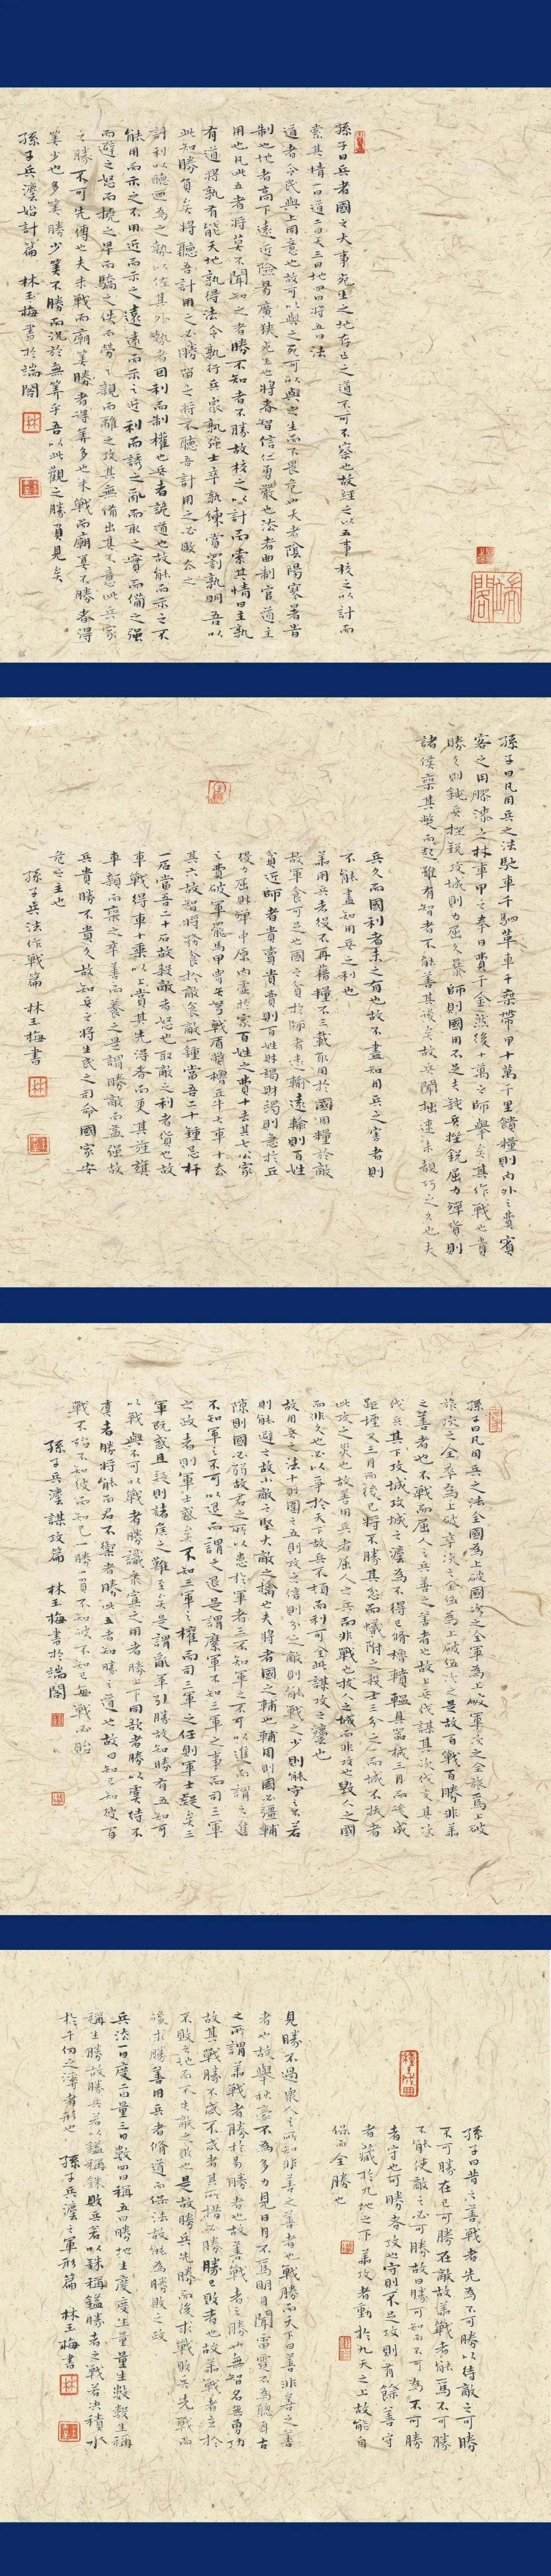 孫子曰兵者國之大事死生之地存亡之道不可不察也故經之以五事校之以計而
索其情一曰道二曰天三曰地四曰將五曰法
道者令民與上同意也故可以與之死可以與之生而不畏危也天者陰陽寒暑時
制也地者高下遠近險易廣狹死生也將者智信仁勇嚴也法者曲制官道主
用也凡此五者將莫不聞知之者勝不知者不勝故校之以計而索其情曰主孰
有道將孰有能天地孰得法令孰行兵眾孰強士卒孰練賞罰孰明吾以
此知勝負矣將聽吾計用之必勝留之將不聽吾計用之必敗去之
計利以聽迺為之埶以佐其外埶者因利而制權也兵者詭道也故能而示之不
能用而示之不用近而示之遠遠而示之近利而誘之亂而取之實而備之強
而避之怒而撓之卑而驕之佚而勞之親而離之攻其無備出其不意此兵家
之勝不可先傳也夫未戰而廟筭勝者得筭多也未戰而廟筭不勝者得
筭少也多筭勝少筭不勝而況於無筭乎吾以此觀之勝負見矣
孫子兵灋始計篇 林玉梅書於端閣
端閣
孫子曰凡用兵之法馳車千駟革車千乘帶甲十萬千里饋糧則內外之費賓
客之用膠漆之材車甲之奉日費千金然後十萬之師舉矣其作戰也貴
勝久則鈍兵挫銳攻城則力屈久暴師則國用不足夫鈍兵挫銳屈力殫貨則
諸侯乘其弊而起雖有智者不能善其後矣故兵聞拙速未覩巧之久也夫
兵久而國利者未之有也故不盡知用兵之害者則
不能盡知用兵之利也
善用兵者役不再藉糧不三載取用於國因糧於敵
故軍食可足也國之貧於師者遠輸遠輸則百姓
貧近師者貴賣貴賣則百姓財竭財竭則急於丘
役力屈財殫中原內虛於家百姓之費十去其七公家
之費破軍罷馬甲冑矢弩戟盾蔽櫓丘牛大車十去
其六故智將務食於敵食敵一鍾當吾二十鍾䓇杆
一石當吾二十石故殺敵者怒也取敵之利者貨也故
車戰得車十乘以上賞其先得者而更其旌旗
車雜而乘之卒善而養之是謂勝敵而益強故
兵貴勝不貴久故知兵之將生民之司命國家安
危之主也
孫子兵法作戰篇 林玉梅書
孫子曰凡用兵之法全國為上破國次之全軍為上破軍次之全旅為上破
旅次之全卒為上破卒次之全伍為上破伍次之是故百戰百勝非善
之善者也不戰而屈人之兵善之善者也故上兵伐謀其次伐交其次
伐兵其下攻城攻城之灋為不得已脩櫓轒轀具器械三月而後成
距堙又三月而後已將不勝其忿而蟻附之殺士三分之一而城不拔者
此攻之災也故善用兵者屈人之兵而非戰也拔人之城而非攻也毀人之國
而非久也必以爭於天下故兵不頓而利可全此謀攻之灋也
故用兵之法十則圍之五則攻之倍則分之敵則能戰之少則能守之不若
則能避之故小敵之堅大敵之擒也夫將者國之輔也輔周則國必彊輔
隙則國必弱故君之所以患於軍者三不知軍之不可以進而謂之進
不知軍之不可以退而謂之退是謂縻軍不知三軍之事而同三軍
之政者則軍士惑矣不知三軍之權而同三軍之任則軍士疑矣三
軍既惑且疑則諸侯之難至矣是謂亂軍引勝故知勝有五知可
以戰與不可以戰者勝識眾寡之用者勝上下同欲者勝以虞待不
虞者勝將能而君不禦者勝此五者知勝之道也故曰知己知彼百
戰不殆不知彼而知己一勝一負不知彼不知己每戰必殆
孫子兵灋謀攻篇 林玉梅書於端閣
孫子曰昔之善戰者先為不可勝以待敵之可勝
不可勝在己可勝在敵故善戰者能為不可勝
不能使敵之必可勝故曰勝可知而不可為不可勝
者守也可勝者攻也守則不足攻則有餘善守
者藏於九地之下善攻者動於九天之上故能自
保而全勝也
見勝不過眾人之所知非善之善者也戰勝而天下曰善非善之善
者也故舉秋豪不為多力見日月不為明目聞雷霆不為聰耳古
之所謂善戰者勝於易勝者也故善戰者之勝也無智名無勇功
故其戰勝不忒不忒者其所措必勝勝已敗者也故善戰者立於
不敗之地而不失敵之敗也是故勝兵先勝而後求戰敗兵先戰而
後求勝善用兵者脩道而保法故能為勝敗之政
兵法一曰度二曰量三曰數四曰稱五曰勝地生度度生量量生數數生稱
稱生勝故勝兵若以鎰稱銖敗兵若以銖稱鎰勝者之戰若決積水
於千仞之谿者形也 孫子兵灋之軍形篇 林玉梅書